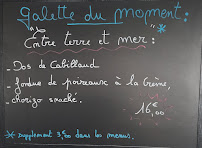 Galette du moment :
"Entre terre et mer" : *
- Dos de Cabillaud
- fondue de poireaux à la crème,
chorizo snacké.
16€,00
* supplement 3€00 dans les menus.